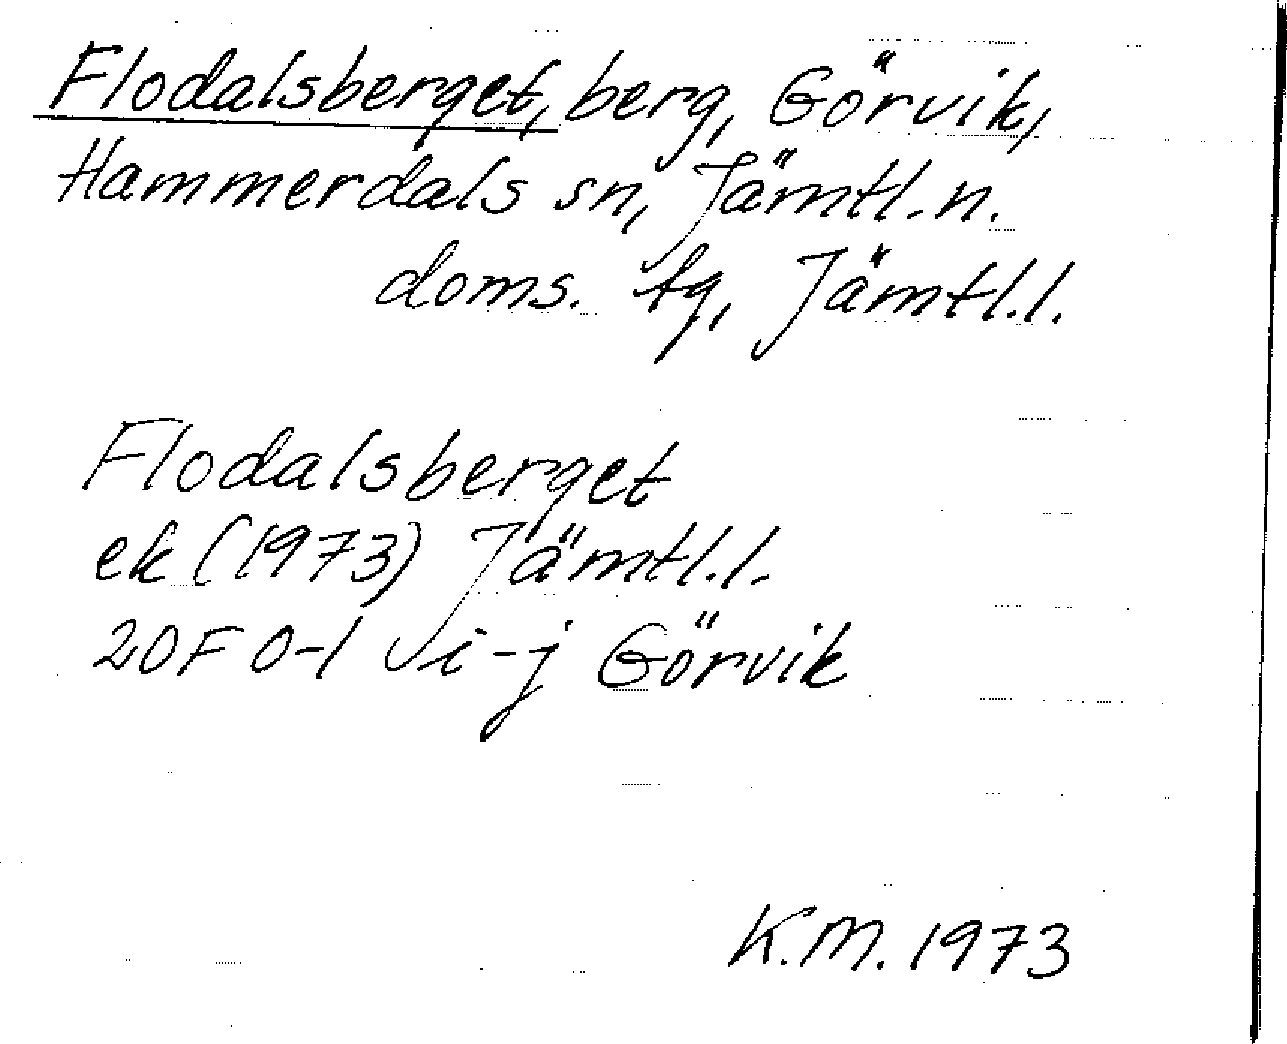 Flodalsberget, berg, Görvik,
Hammerdals sn, Jämtl. n.
doms. tg, Jämtl. l.
Flodalsberget
ek (1973) Jämtl. l.
20F 0-1 i-j Görvik
K.M. 1973